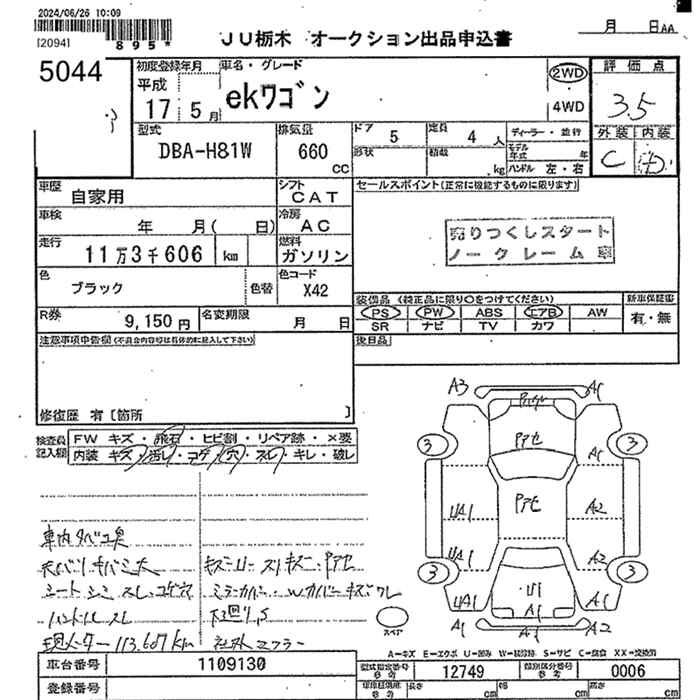 2024/06/26 10:09
[2094]
895
JU栃木 オークション出品申込書
月 日AA
5044
初度登録年月
平成
17 5月
車名・グレード
ekワゴン
2WD
4WD
評価点
3.5
外装 内装
C
型式
DBA-H81W
排気量
660
CC
ドア
5
定員
4人
形状
積載
kg
ディーラー・並行
モデル年式 年
ハンドル 左・右
車歴
自家用
シフト
CAT
セールスポイント(正常に機能するものに限ります)
売りつくしスタート
ノークレーム車
車検
年 月( 日)
冷房
AC
走行
11万3千606 km
燃料
ガソリン
色
ブラック
色替
色コード
X42
装備品 (純正品に限り○をつけてください)
PS PW ABS エアB AW
SR ナビ TV カワ
新車保証書
有・無
R券
9,150円
名変期限
月 日
後日品
注意事項申告欄(不具合内容等は具体的に記入して下さい)
修復歴 有〔箇所 〕
検査員記入欄
FW キズ・飛石・ヒビ割・リペア跡・×要
内装 キズ・汚レ・コゲ・穴・スレ・キレ・破レ
車内タバコ臭
シートシミ スレ コゲ穴
ハンドルスレ
現メーター 113,607km
ミラーカバー・Wカバーキズワレ
下廻りS
社外マフラー
A3
A1
Pアセ
3
3
A1
Pアセ
UA1
A2
UA1
A2
3
3
UA1
U1
A1
A1
A1
A2
スペア
A=キズ E=エクボ U=凹み W=補修跡 S=サビ C=腐食 XX=交換済
車台番号
1109130
型式指定番号
参考
12749
類別区分番号
参考
0006
登録番号
長さ cm
幅 cm
高さ cm